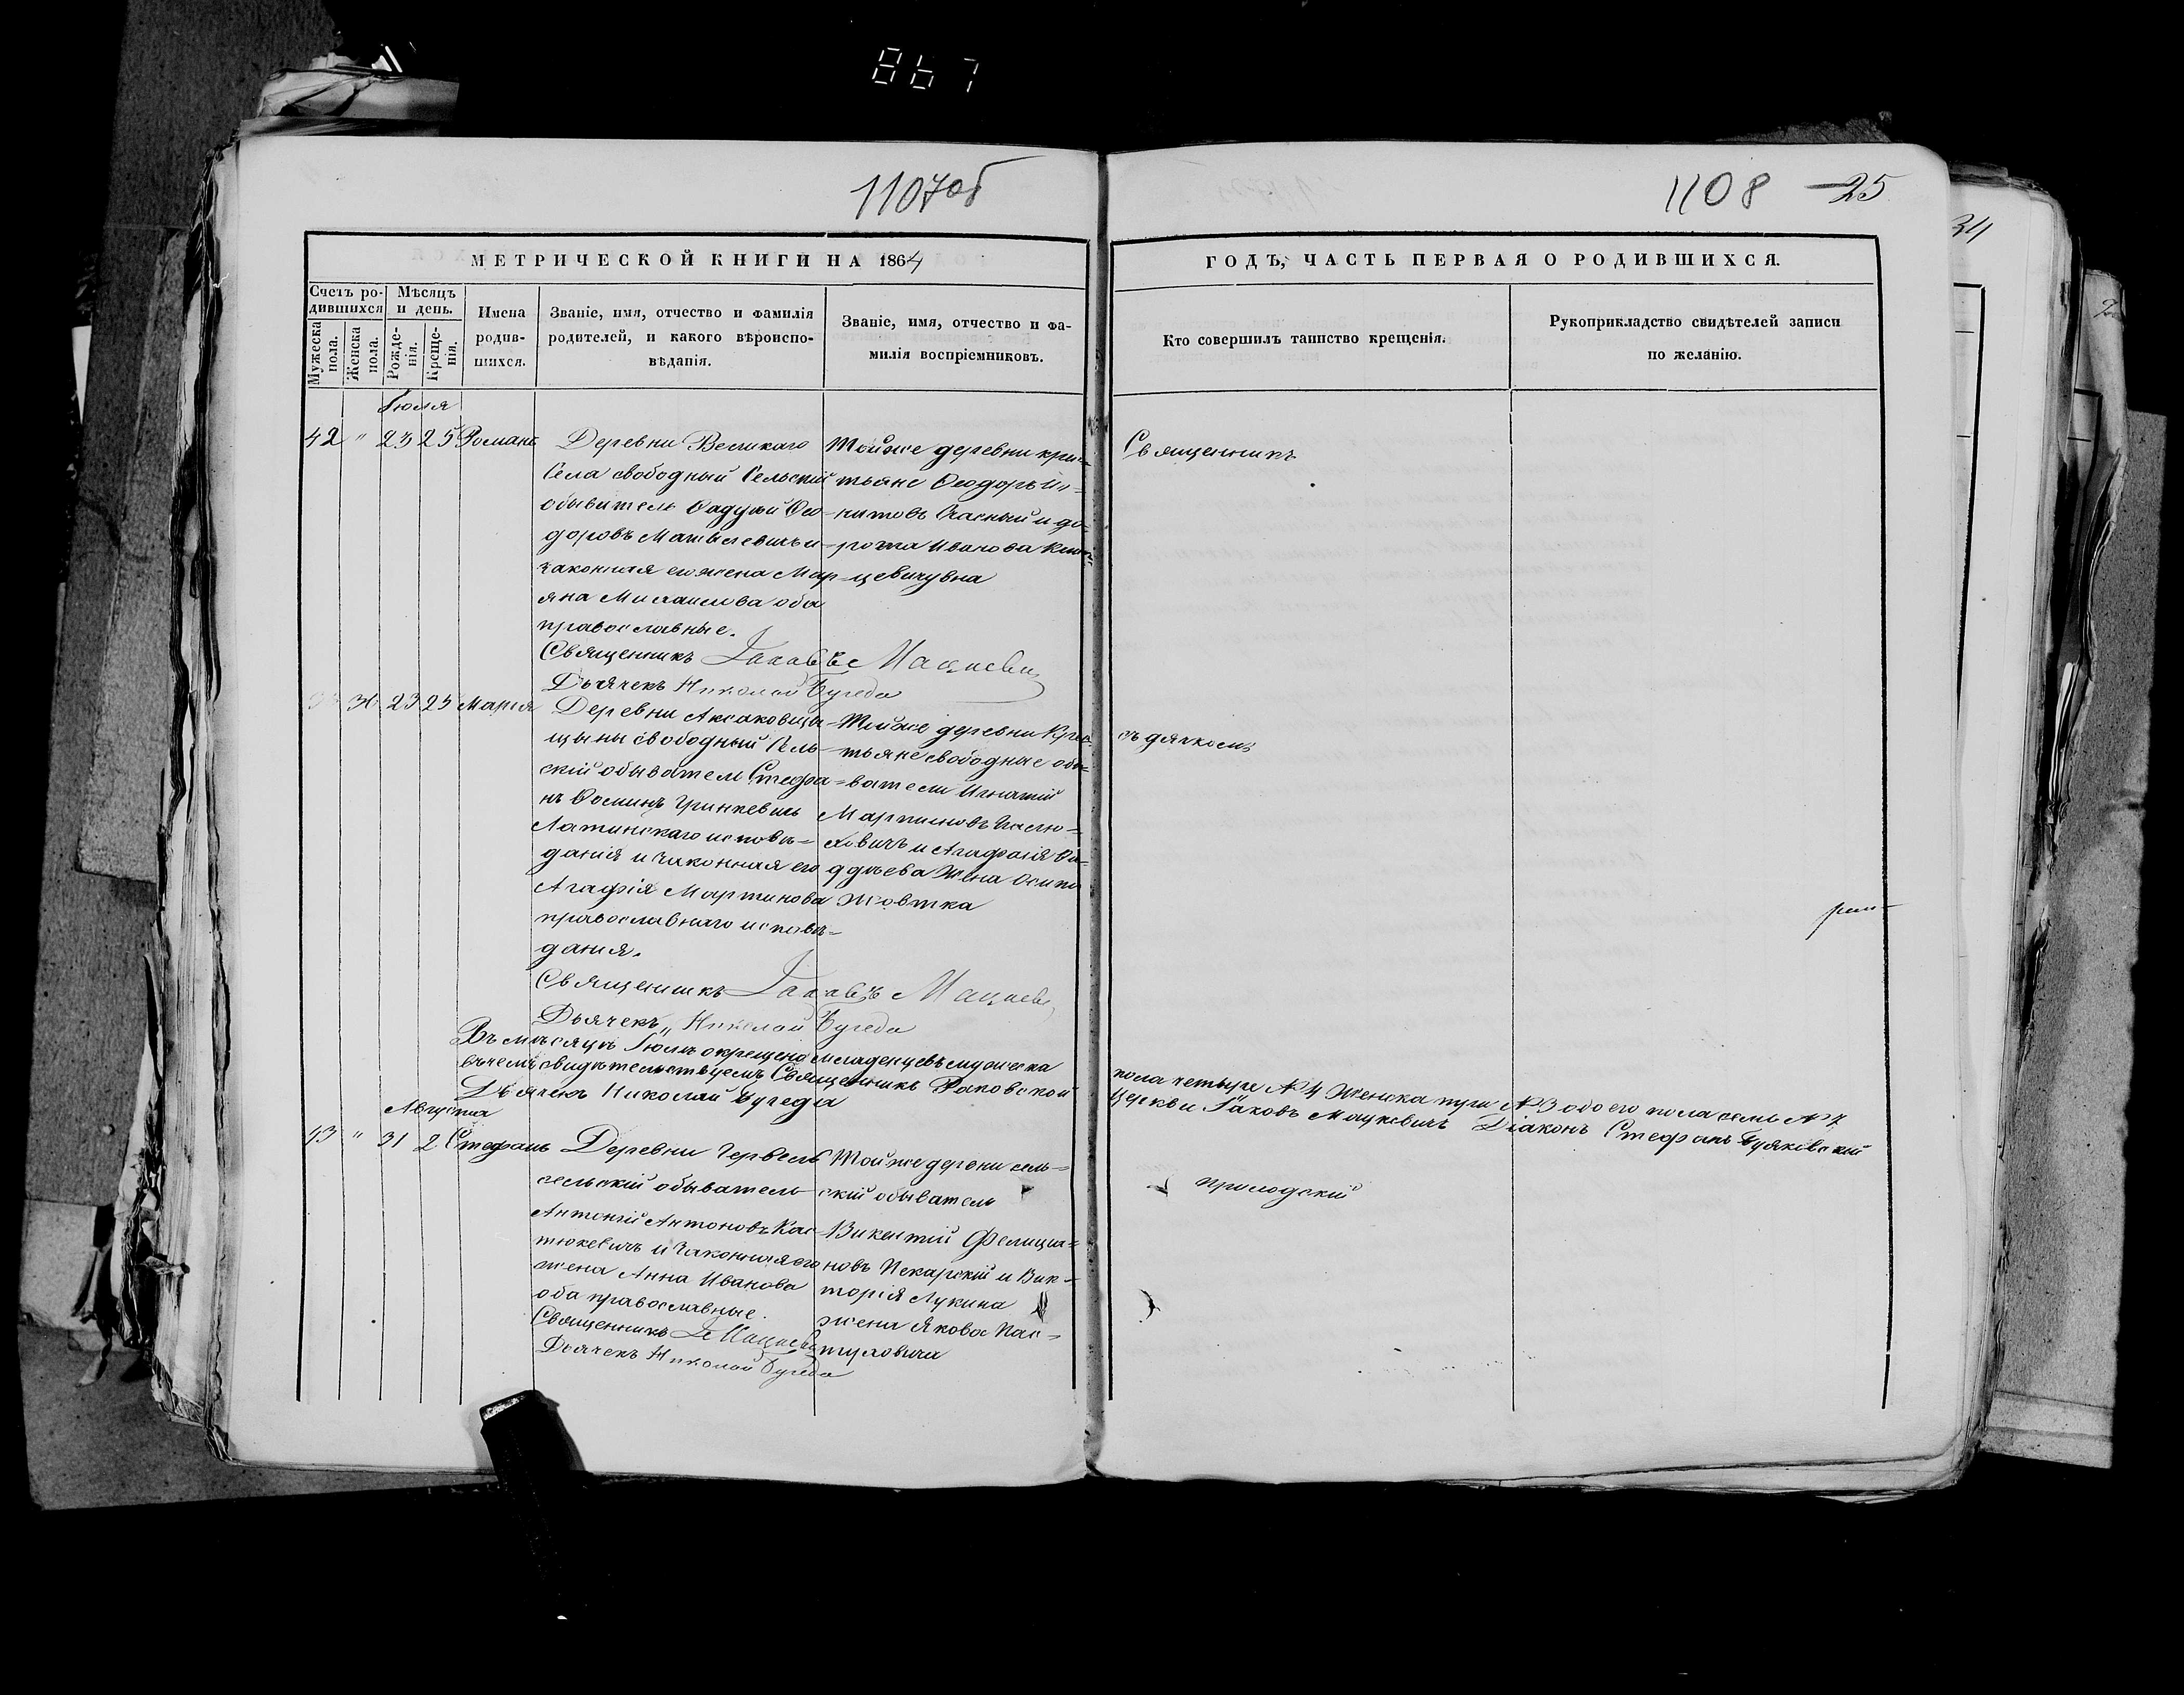 867
1107об
1108 25
34
МЕТРИЧЕСКОЙ КНИГИ НА 1864
ГОДЪ, ЧАСТЬ ПЕРВАЯ О РОДИВШИХСЯ.
Счетъ ро-
дившихся
Мужеска пола.
Женска пола.
Мѣсяцъ
и день.
Рожде-
нія.
Креще-
нія.
Имена
родив-
шихся.
Званіе, имя, отчество и фамилія
родителей, и какого вѣроиспо-
вѣданія.
Званіе, имя, отчество и фа-
милія воспріемниковъ.
Кто совершилъ таинство крещенія.
Рукоприкладство свидѣтелей записи
по желанію.
Іюля
42 " 23 25 Романъ
Деревни Великаго
Села свободный Сельскій
обыватель Фадѵей Ѳео-
доровъ и
законная его жена Мар-
яна Михаилова оба
православные.
Священникъ Іаковъ
Дьячекъ Николай
Тойже деревни крес-
тьяне Ѳеодоръ
и до-
рота Иванова
цевичувна
Священникъ
36 23 25 Марія
Деревни
щыны свободный Сель-
скій обыватель Стефа-
нъ Ѳоминъ Гринкевичь
Латинскаго исповѣ-
данія и законная его
Агафія Мартинова
православнаго исповѣ-
данія.
Священникъ Іаковъ
Дьячекъ Николай
Тойже деревни Крес-
тьяне свободные обы-
ватели Игнатій
Мартиновъ
ховичъ и Агафія Фа-
ддѣева Жена Осипа
Жовтка
съ дячкомъ
Въ мѣсяцѣ Іюлѣ окрещено младенцевъ мужеска
пола четыре № 4 Женска три № 3 обоего пола семь № 7
въ чемъ свидѣтельствуемъ Священникъ Раковской
Церкви Іаковъ Мацкевичъ Діаконъ Стефанъ
Дьячекъ Николай
Августа
43 " 31 2 Стефанъ
Деревни Червель
сельскій обыватель
Антоній Антоновъ Кас-
тюкевичъ и законная его
жена Анна Иванова
оба православные.
Священникъ
Дьячекъ Николай
Той же дерени сель-
скій обыватель
Викентій Фелиціа-
новъ Пекарскій и Вик-
торія Лукина
жена Якова Пас-
туховича
приходскій